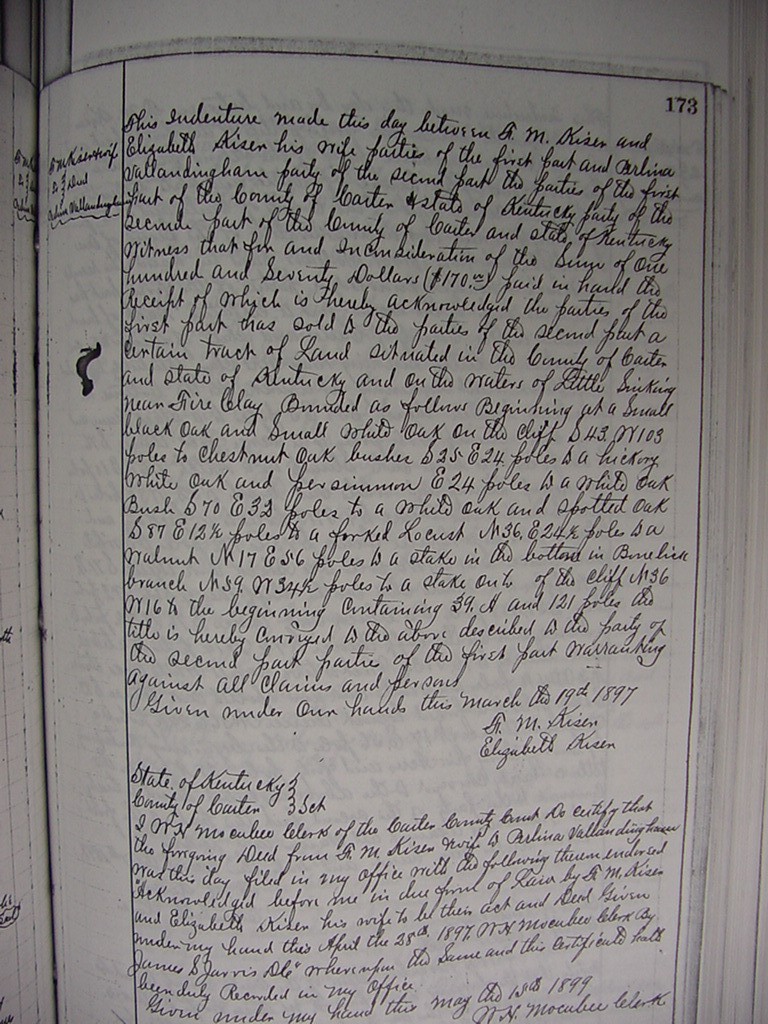 173
F M Kiser & wife
To } Deed
Perlina Vallandingham
This Indenture made this day between F. M. Kiser and
Elizabeth Kiser his wife parties of the first part and Perlina
Vallandingham party of the second part the parties of the first
part of the County of Carter & state of Kentucky party of the
second part of the County of Carter and state of Kentucky
Witness that for and Inconsideration of the Sum of One
hundred and Seventy Dollars ($170.00) paid in hand the
Receipt of which is hereby acknowledgid the parties of the
first part has sold to the parties of the second part a
certain tract of Land situated in the County of Carter
and state of Kentucky and on the waters of Little Sinking
near Fire Clay Bounded as follows Beginning at a Small
black Oak and Small White Oak on the Cliff S43 W103
poles to Chestnut Oak bushes S25 E24 poles to a hickory
White Oak and persimmon E24 poles to a White Oak
Bush S70 E32 poles to a White Oak and spotted Oak
S87 E12½ poles to a forked Locust N36 E24½ poles to a
Walnut N17 E56 poles to a stake in the bottom in Bonelick
branch N59. W34½ poles to a stake on to of the Cliff N36
W16 to the beginning Containing 39. A and 121 poles the
title is hereby Conveyed to the above described to the party of
the second part parties of the first part Warranting
against all Claims and persons
Given under Our hands this March the 19th 1897
F. M. Kiser
Elizabeth Kiser
State of Kentucky }
County of Carter } Sct
I W.N. Mocabee Clerk of the Carter County Court Do certify that
the foregoing Deed from F. M. Kiser & wife to Perlina Vallandingham
was this day filed in my Office with the following therein endorsed
Acknowledged before me in due form of Law by F. M. Kiser
and Elizabeth Kiser his wife to be their act and Deed Given
under my hand this April the 28th 1897. W.N. Mocabee Clerk By
James S Jarvis Dc whereupon the Same and this Certificate hath
been duly Recorded in my Office.
Given under my hand this may the 15th 1899
W.N. Mocabee Clerk